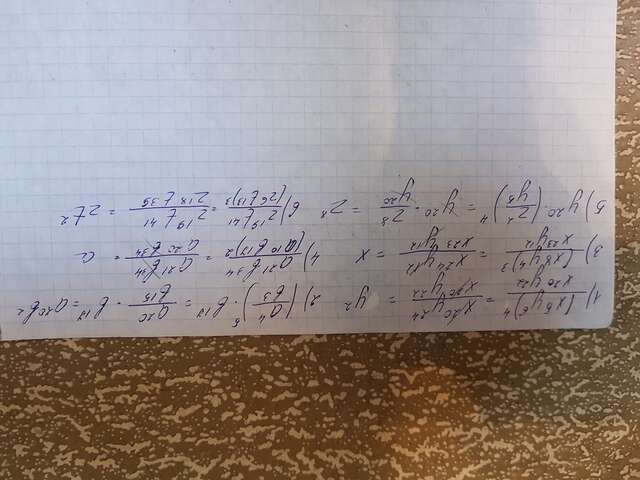 1) (x⁵y⁶)⁴/x²⁰y²² = x²⁰y²⁴/x²⁰y²² = y² 2) (a⁴/b³)⁵ · b¹⁷ = a²⁰/b¹⁵ · b¹⁷ = a²⁰b²
3) (x⁸y⁴)³/x²³y¹² = x²⁴y¹²/x²³y¹² = x 4) a²¹b³⁴/(a¹⁰b¹⁷)² = a²¹b³⁴/a²⁰b³⁴ = a
5) y²⁰ · (z²/y⁵)⁴ = y²⁰ · z⁸/y²⁰ = z⁸ 6) 2¹⁹t⁴¹/(2⁶t¹³)³ = 2¹⁹t⁴¹/2¹⁸t³⁹ = 2t²